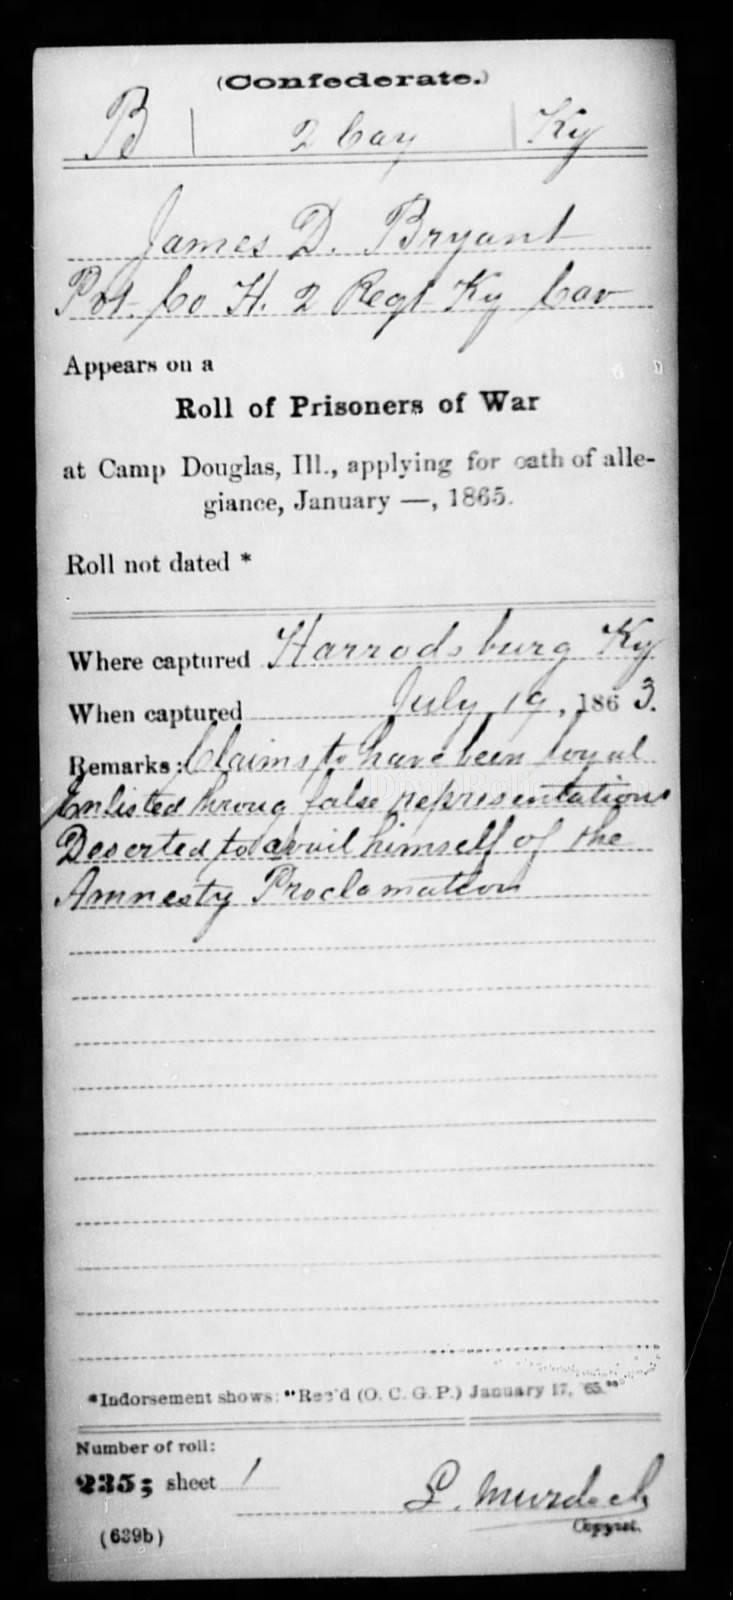 (Confederate.)
B | 2 Cav | Ky
James D. Bryant
Pvt. Co H. 2 Regt Ky Cav
Appears on a
Roll of Prisoners of War
at Camp Douglas, Ill., applying for oath of alle-
giance, January —, 1865.
Roll not dated *
Where captured Harrodsburg Ky
When captured July 19, 1863.
Remarks: Claims to have been loyal
Enlisted throug false representations
Deserted to avail himself of the
Amnesty Proclamation
*Indorsement shows: "Rec'd (O. C. G. P.) January 17, '65."
Number of roll:
235; sheet 1
L. Murdoch
Copyist.
(639b)